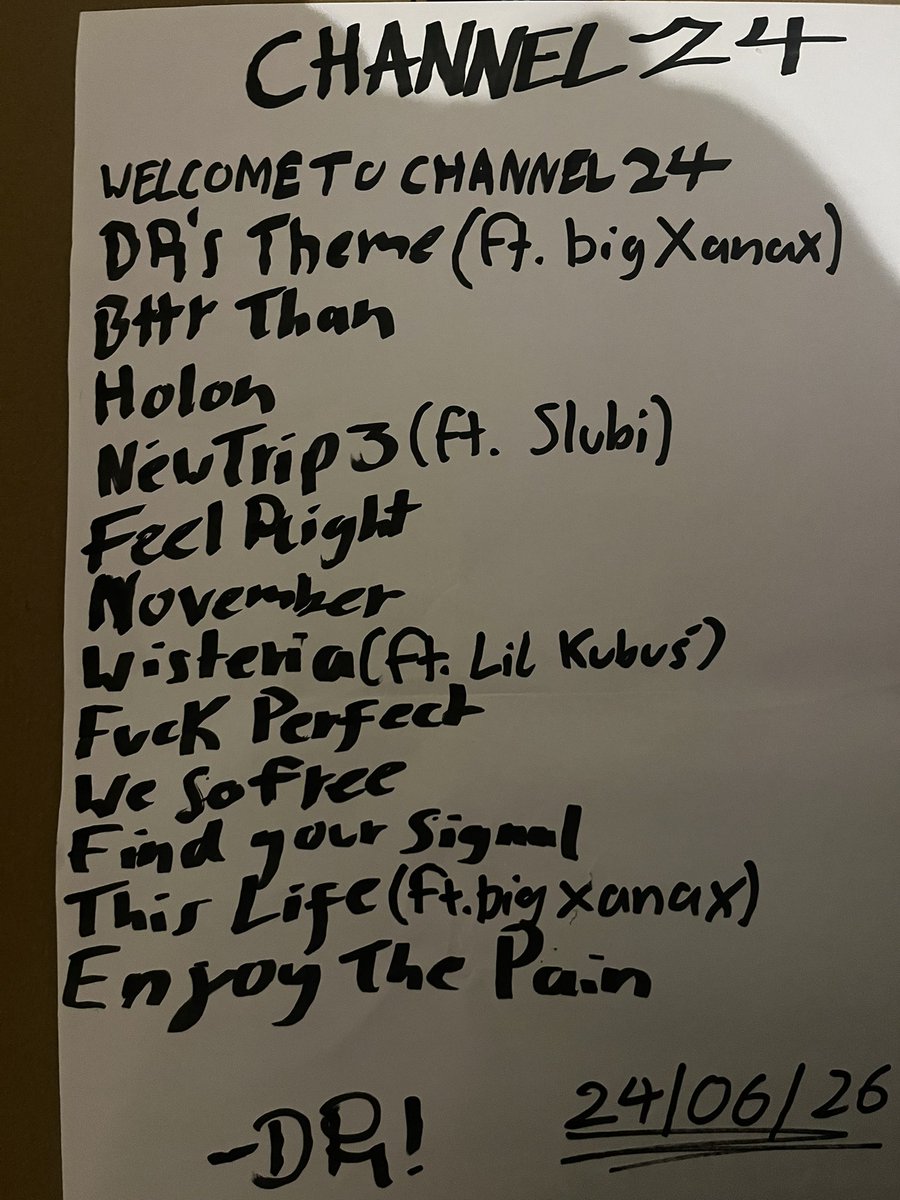 CHANNEL 24
WELCOME TO CHANNEL 24
DR's Theme (ft. big Xanax)
Bttr Than
Holon
New Trip 3 (ft. Slubi)
Feel Right
November
Wisteria (ft. Lil Kubuś)
Fuck Perfect
We So Free
Find your Signal
This Life (ft. big xanax)
Enjoy The Pain
-DR!
24/06/26